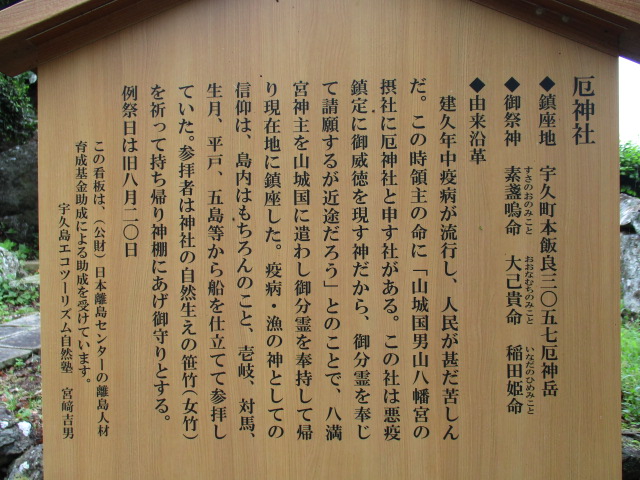 厄神社
◆鎮座地　宇久町本飯良三〇五七厄神岳
◆御祭神　素盞嗚命　大己貴命　稲田姫命
すさのおのみこと　おおなむちのみこと　いなだのひめみこと
◆由来沿革
建久年中疫病が流行し、人民が甚だ苦しん
だ。この時領主の命に「山城国男山八幡宮の
摂社に厄神社と申す社がある。この社は悪疫
鎮定に御威徳を現す神だから、御分霊を奉じ
て請願するが近途だろう」とのことで、八満
宮神主を山城国に遣わし御分霊を奉持して帰
り現在地に鎮座した。疫病・漁の神としての
信仰は、島内はもちろんのこと、壱岐、対馬、
生月、平戸、五島等から船を仕立てて参拝し
ていた。参拝者は神社の自然生えの笹竹（女竹）
を祈って持ち帰り神棚にあげ御守りとする。
例祭日は旧八月二〇日
この看板は、（公財）日本離島センターの離島人材
育成基金助成による助成を受けています。
宇久島エコツーリズム自然塾　宮﨑吉男